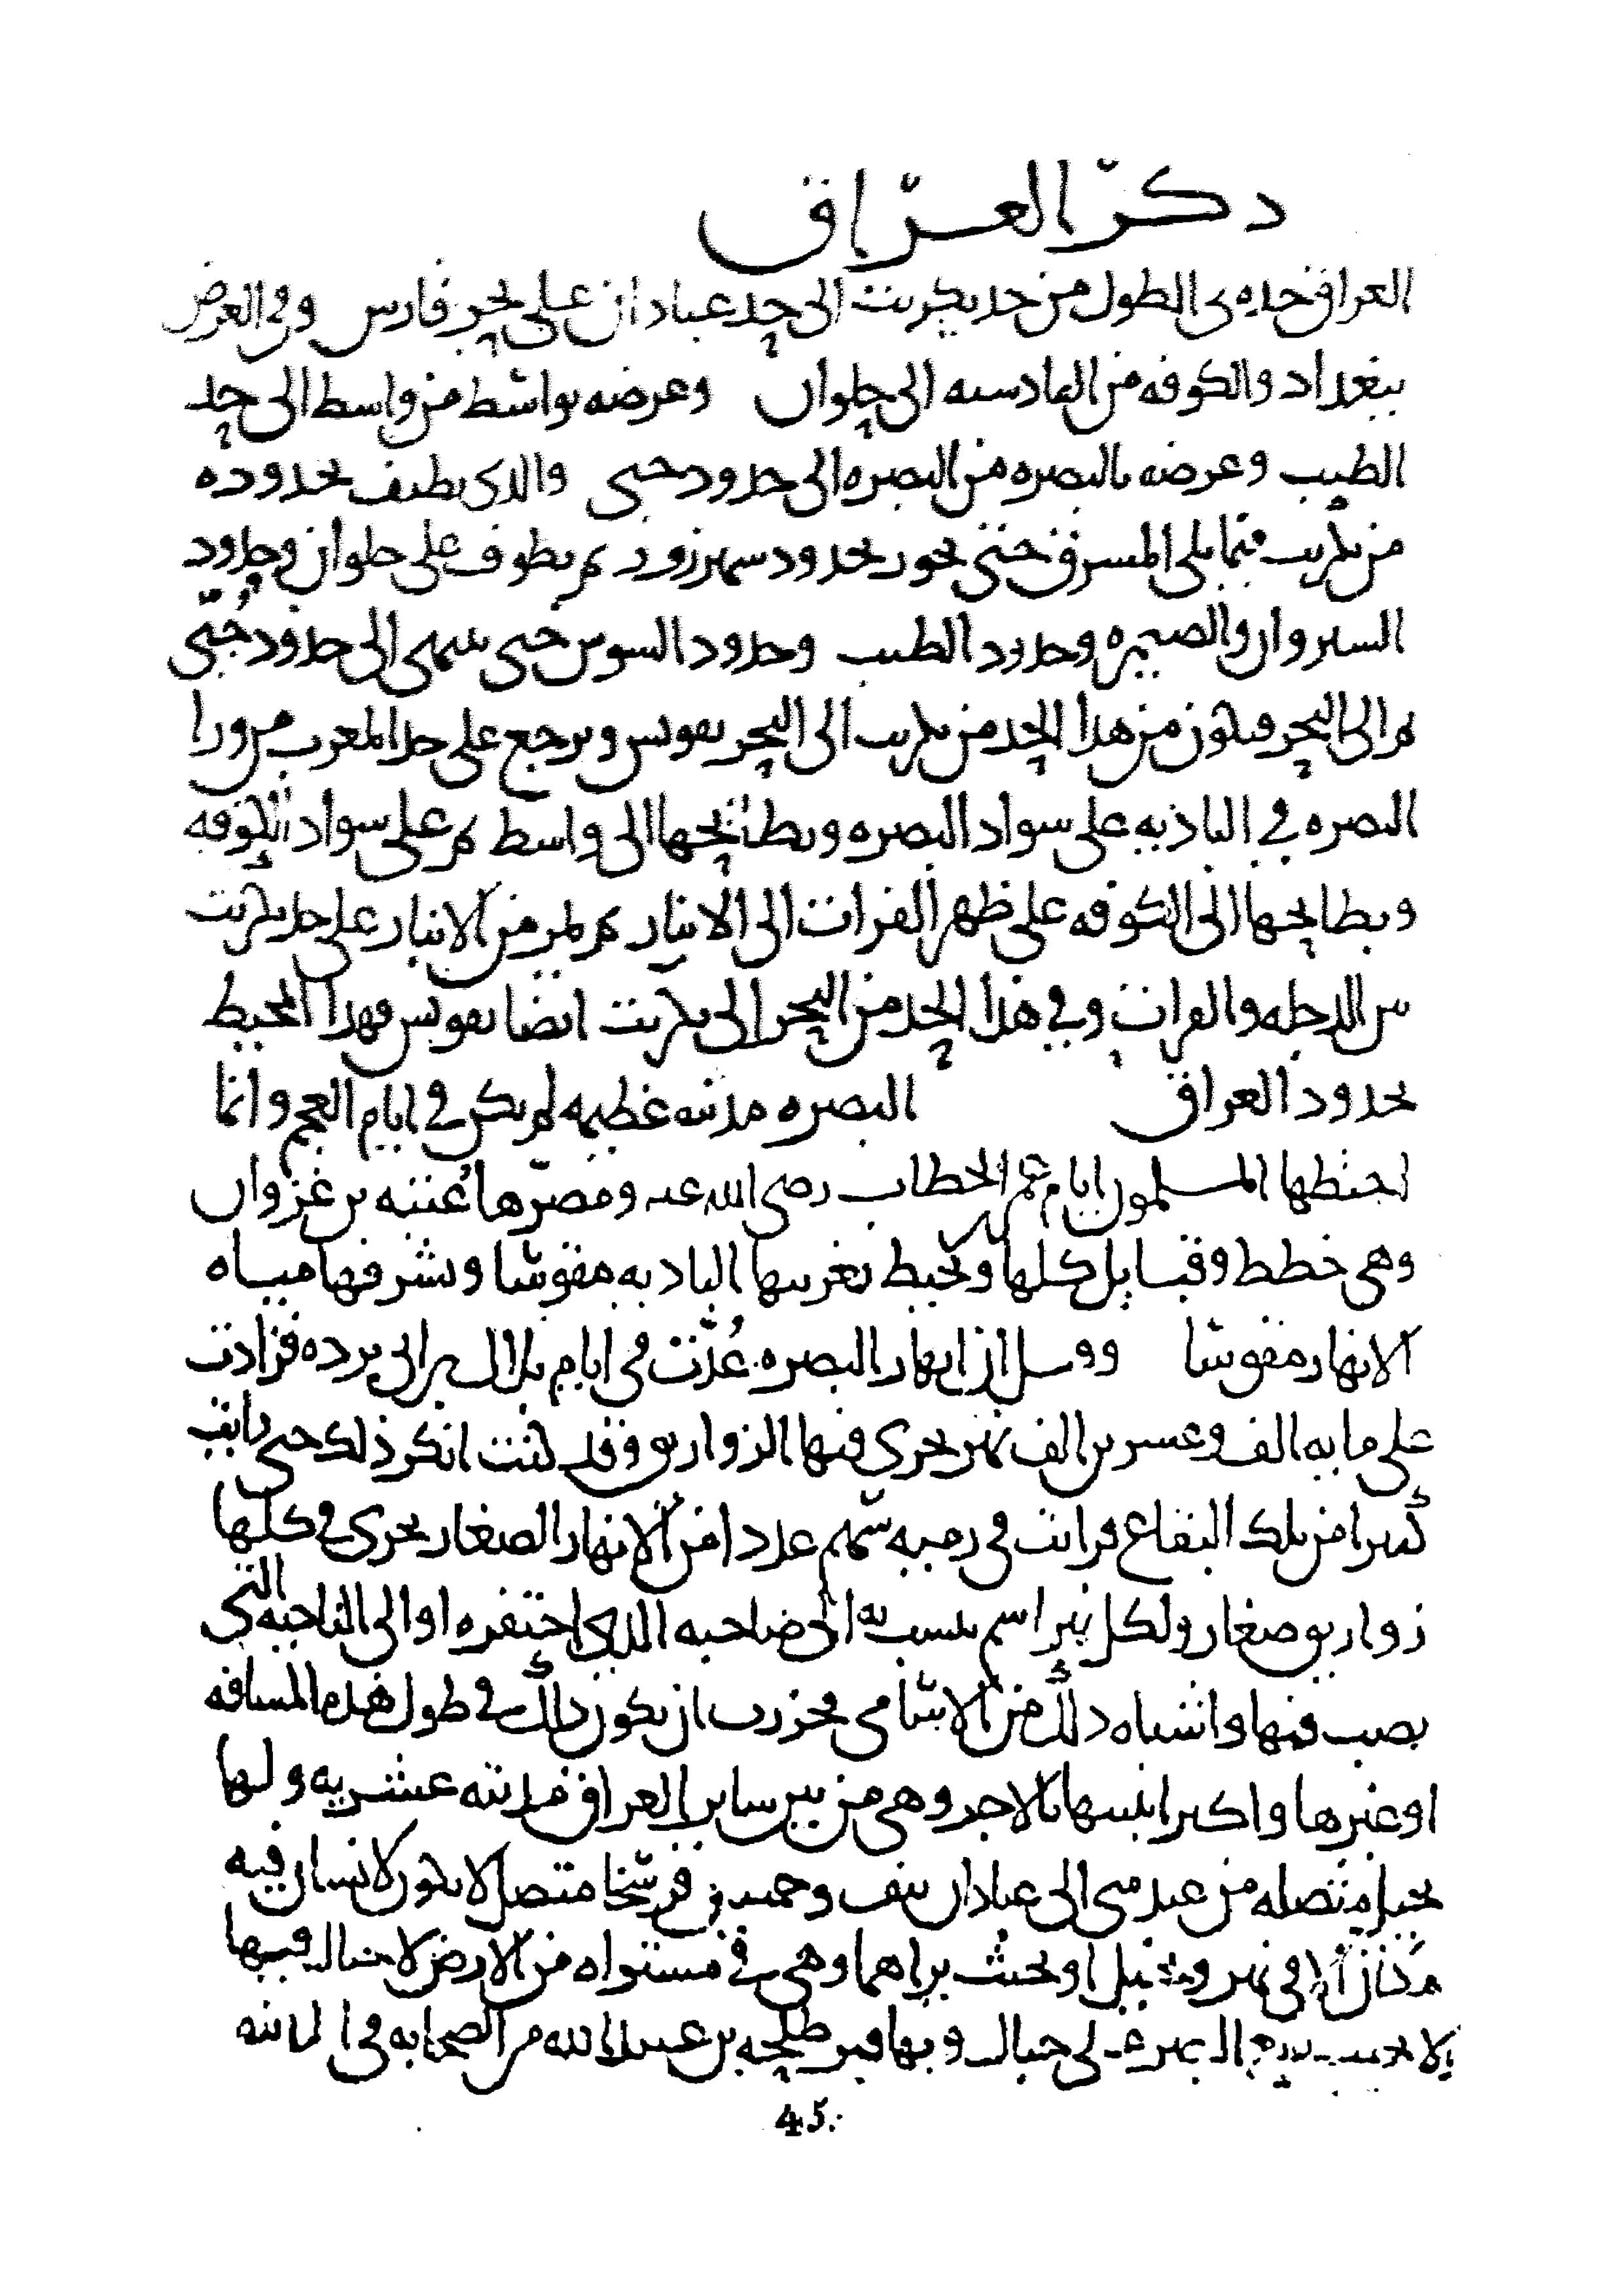 ذكر العراق
العراق حده في الطول من حد تكريت الى حد عبادان على بحر فارس وفي العرض
ببغداد والكوفه من القادسيه الى حلوان وعرضه بواسط من واسط الى حد
الطيب وعرضه بالبصره من البصره الى حدود جبى والذى يطيف بحدوده
من تكريت فيما يلى المشرق حتى يجوز بحدود سهرزور ثم يطوف على حلوان وحدود
السيروان والصيمره وحدود الطيب وحدود السوس حتى ينتهى الى حدود جُبّى
ثم الى البحر فيكون من هذا الحد من تكريت الى البحر تقويس ويرجع على حد المغرب من ورا
البصره في الباديه على سواد البصره وبطائحها الى واسط ثم على سواد الكوفه
وبطايحها الى الكوفه على ظهر الفرات الى الانبار ثم يمر من الانبار على حد تكريت
بين الدجله والفرات وفي هذا الحد من البحر الى تكريت ايضا تقويس فهذا المحيط
بحدود العراق البصره مدينه عظيمه لم يكن في ايام العجم وانما
اختطها المسلمون ايام عمر بن الخطاب رضى الله عنه ومصّرها عُتبه بن غزوان
وهى خطط وقبايل كلها ويحيط بغربيها الباديه مقوسا وبشرقها مياه
الانهار مقوسا وقيل ان انهار البصره عُدّت في ايام بلال بن ابى برده فزادت
على مايه الف وعسرين الف نهر يجرى فيها الزواريق وقد كنت انكر ذلك حتى رايت
كثيرا من تلك البقاع فرايت في رميه سهم عددا من الانهار الصغار يجرى في كلها
زواريق صغار ولكل نهر اسم ينسب به الى صاحبه الذى احتفره او الى الناحيه التى
يصب فيها واشباه ذلك من الاسامى فجوزت ان يكون ذلك في طول هذه المسافه
او عبرها واكبر ابنيتها بالاجر وهى من بين ساير العراق مدينه عشريه ولها
نخيل متصله من عبدسى الى عبادان نيف وخمسين فرسخا متصلا لا يكون الانسان فيه
مكان الا في نهر ونخيل او بحيث يراهما وهى في مستواه من الارض لا جبال فيها
ولا بحيث يقع البصر على جبال وبها قبر طلحه بن عبيد الله من الصحابه في المدينه
45